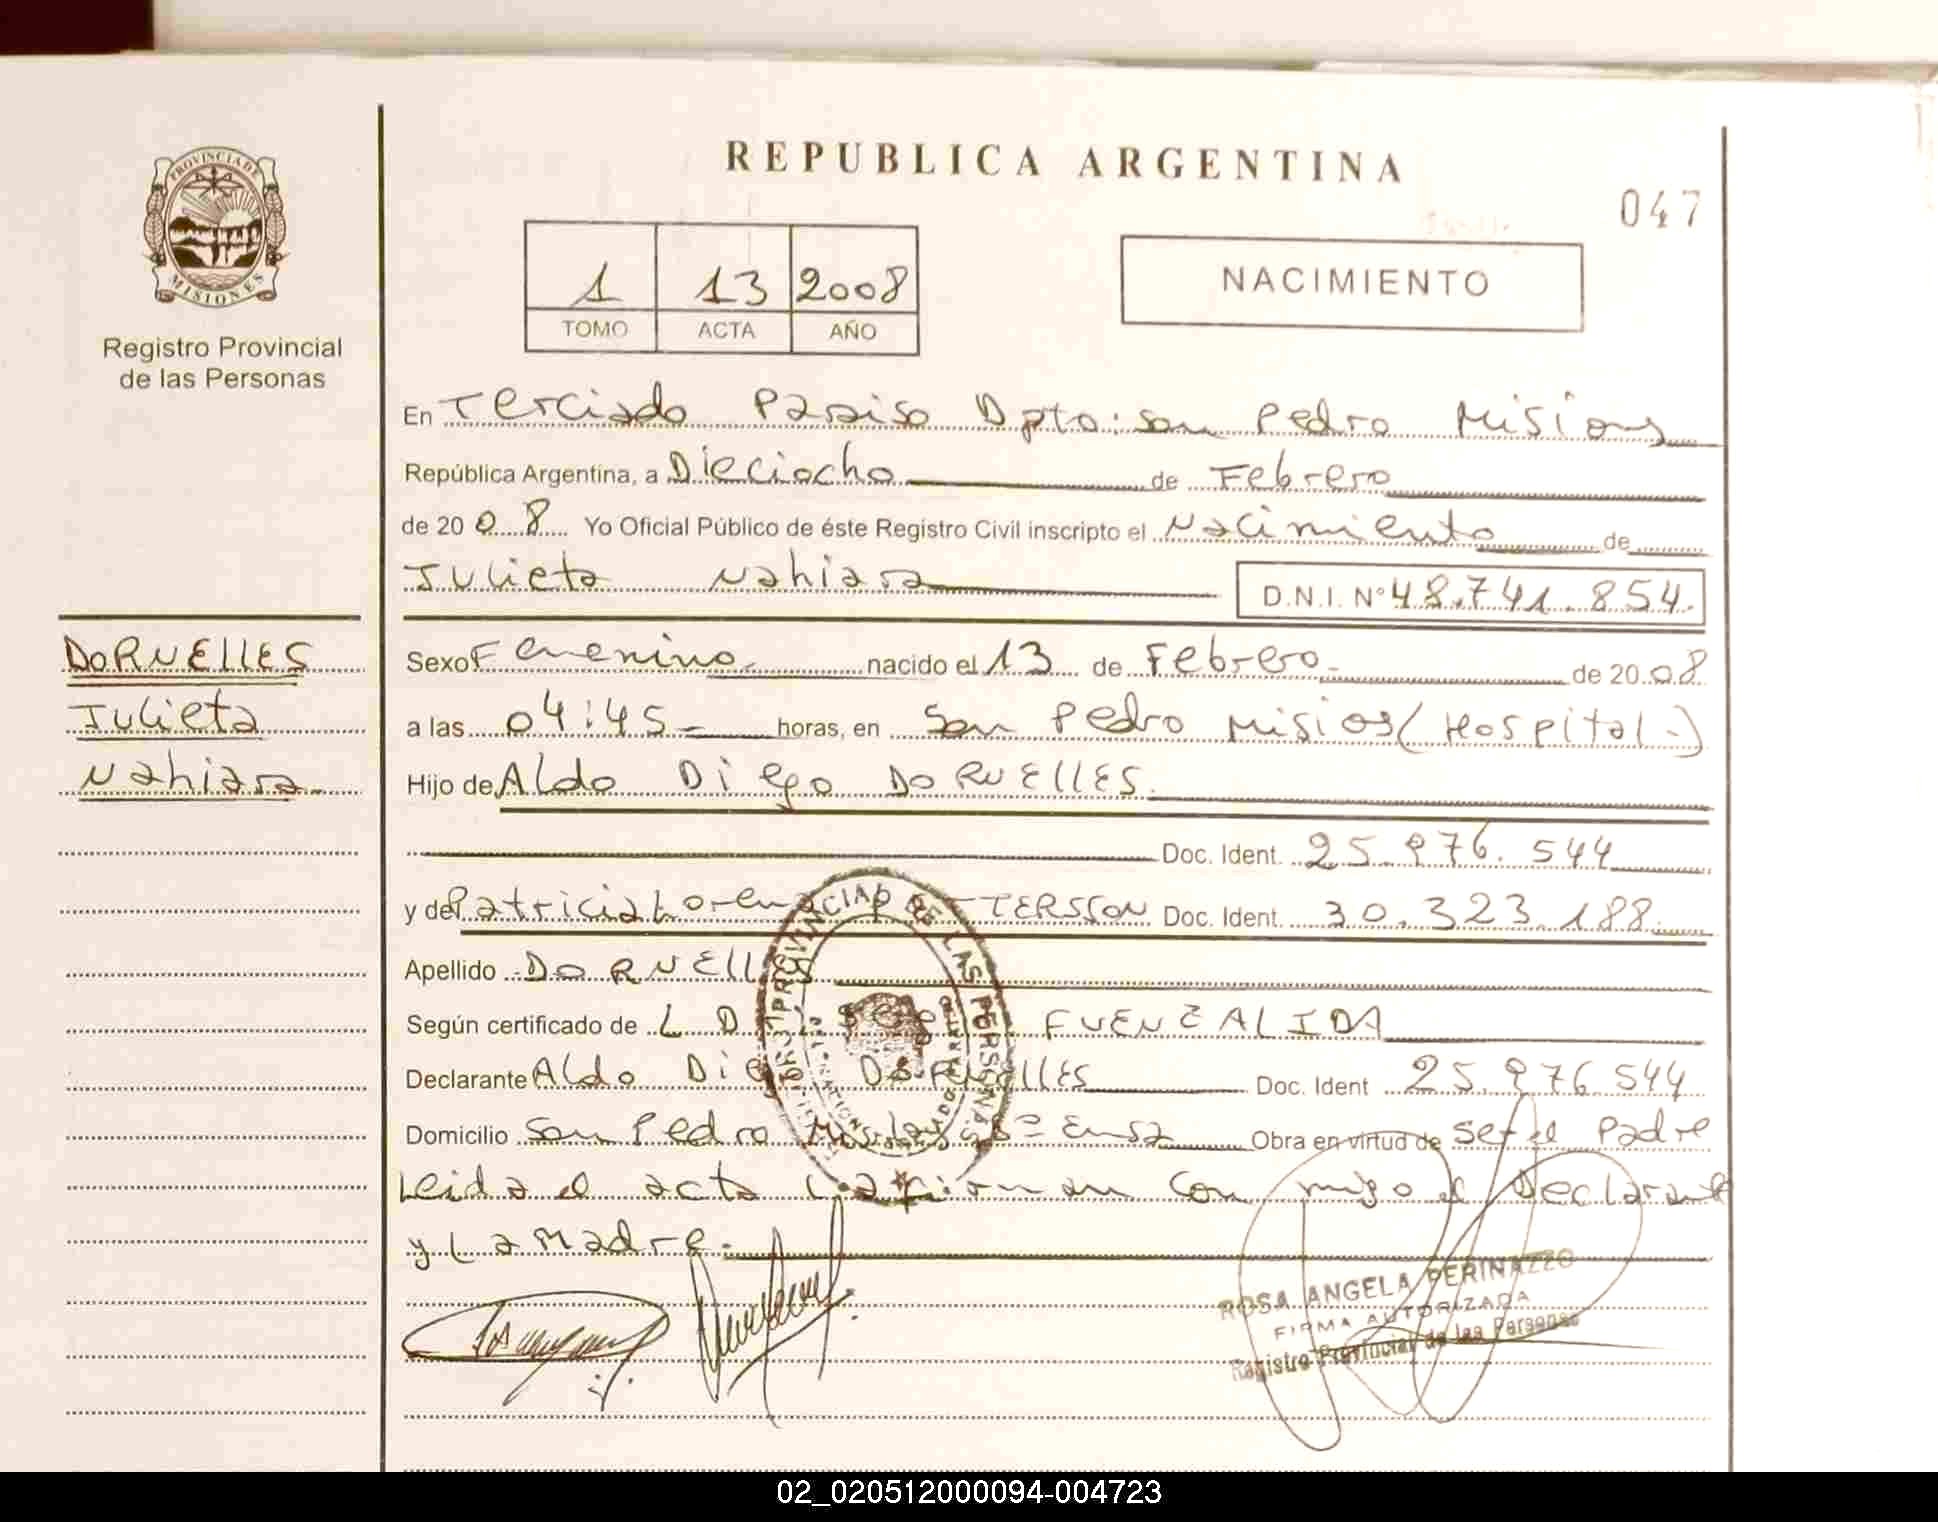 REPUBLICA ARGENTINA
047
PROVINCIA DE
MISIONES
Registro Provincial
de las Personas
1 13 2008
TOMO ACTA AÑO
NACIMIENTO
En Terciado Paraiso Dpto: San Pedro Misiones
República Argentina, a Dieciocho de Febrero
de 2008 Yo Oficial Público de éste Registro Civil inscripto el Nacimiento de
Julieta Nahiara D.N.I. Nº 48.741.854.
DORNELLES
Julieta
Nahiara
Sexo Femenino nacido el 13 de Febrero de 2008
a las 04:45 horas, en San Pedro Misios (Hospital-)
Hijo de Aldo Diego DORNELLES.
Doc. Ident. 25.976.544
y de Patricia Lorena TERSSON Doc. Ident. 30.323.188
Apellido DORNELLES
Según certificado de FUENZALIDA
Declarante Aldo Diego DORNELLES Doc. Ident 25.976.544
Domicilio San Pedro Obra en virtud de ser el Padre
Leida el acta la firman con migo el Declarante
y La Madre.
PROVINCIAL DE LAS PERSONAS
ROSA ANGELA PERINAZZO
FIRMA AUTORIZADA
Registro Provincial de las Personas
02_020512000094-004723